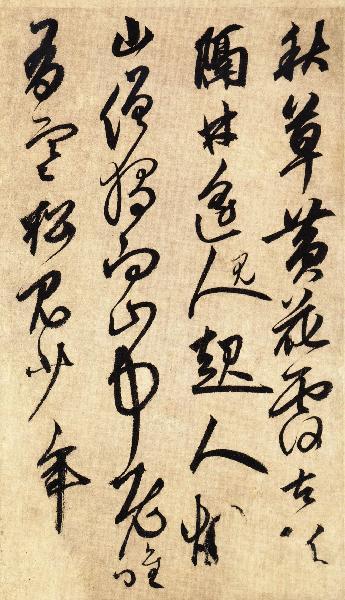 秋草黄花覆古阡
隔林遥見起人烟
山僧獨向山中老唯
有寒松見少年